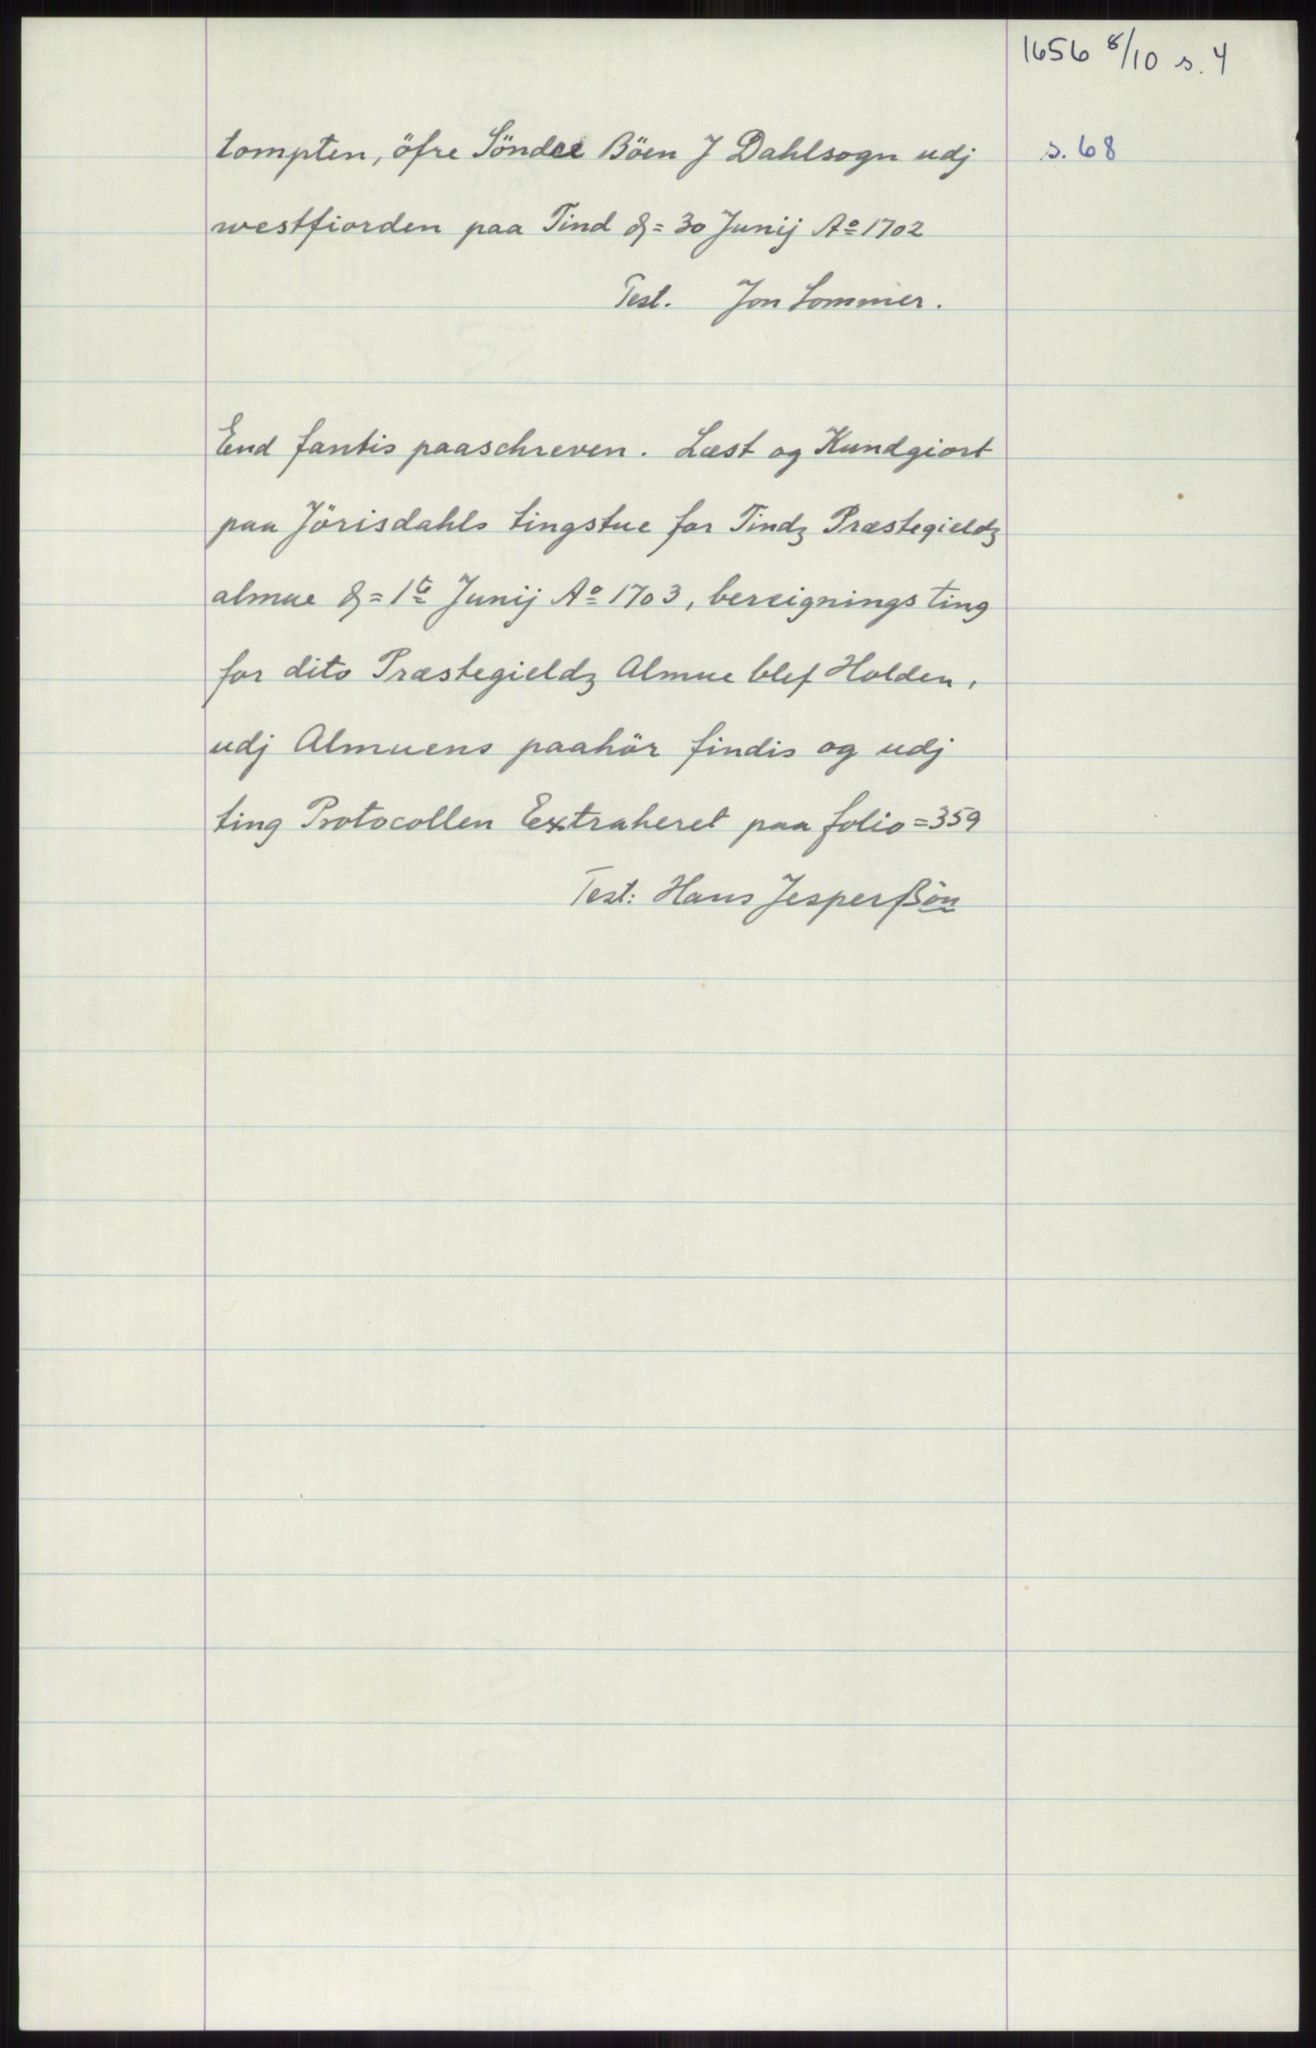 1656 8/10 s. 4
tompten, öfre Söndre Böen J Dahlsogn udj s. 68
westfiorden paa Tind d= 30 Junij Ao 1702
Test. Jon Sommer.
End fantis paaschreven. Læst og Kundgiort
paa Jörisdahls tingstue for Tindz Præstegieldz
almue d= 1te Junij Ao 1703, bereignings ting
for dito Præstegieldz Almue blef Holden,
udj Almuens paahör findis og udj
ting Protocollen Extraheret paa folio = 359
Test: Hans Jesperßön